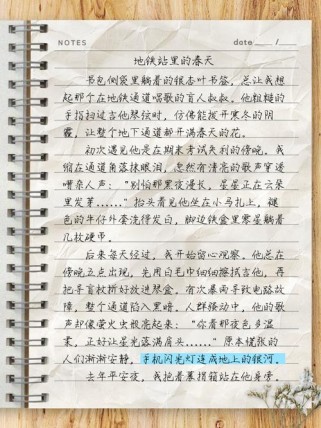 NOTES
date ___ /___
地铁站里的春天
书包侧袋里躺着的银杏叶书签，总让我想
起那个在地铁通道唱歌的盲人叔叔。他粗糙的
手指扫过吉他琴弦时，仿佛能拨开寒冬的阴
霾，让整个地下通道都开满春天的花。
初次遇见他是在期末考试失利的傍晚。我
缩在通道角落抹眼泪，忽然有清亮的歌声穿透
嘈杂人声："别怕那黑夜漫长，星星正在云朵
里发芽......"抬头看见他坐在小马扎上，褪
色的牛仔外套洗得发白，脚边铁盒里零星躺着
几枚硬币。
后来每天经过，我开始留心观察。他总在
傍晚五点出现，先用白毛巾细细擦拭吉他，再
把手盲杖折好放进琴盒。有次暴雨导致电路故
障，整个通道陷入黑暗。人群骚动中，他的歌
声却像萤火虫般亮起来："你看那夜色多温
柔，正好让星光落满肩头......"原本慌张的
人们渐渐安静，手机闪光灯连成地上的银河。
去年平安夜，我抱着募捐箱站在他身旁。